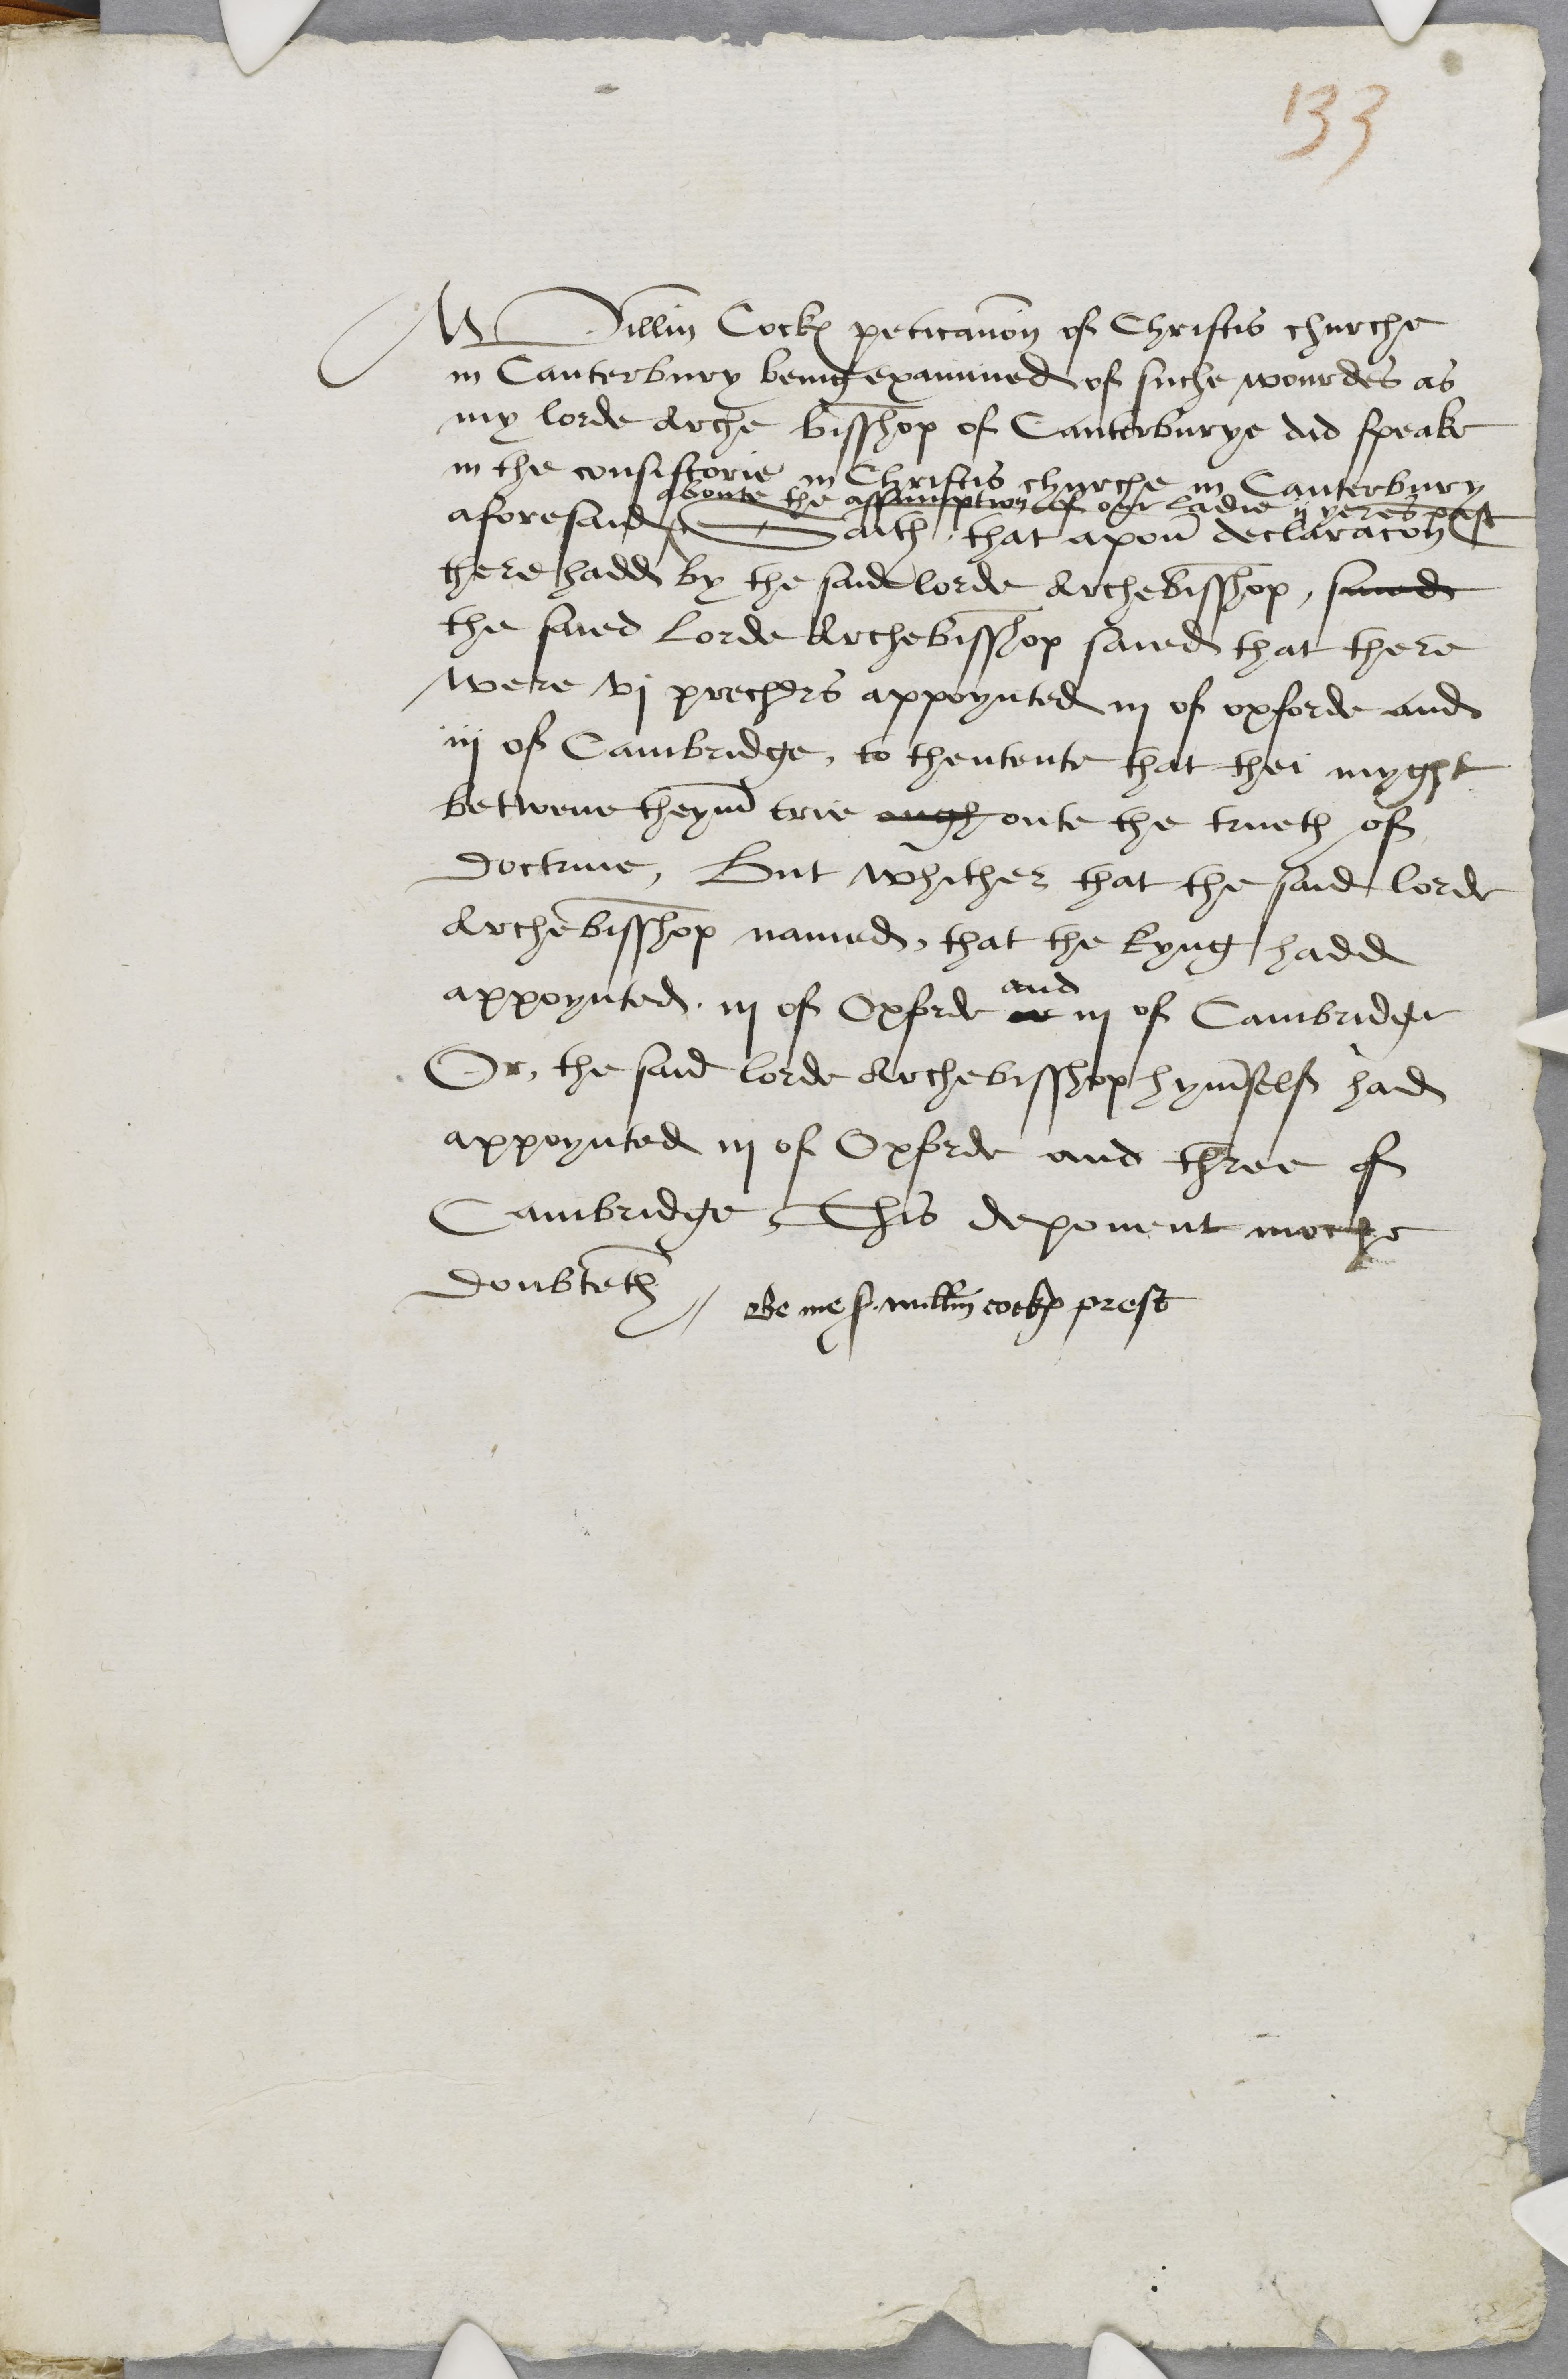 133
Willm Cock peticanon of Christis churche
in Canterbury being examined of suche wourdes as
my lorde Arche bisshop of Canterburye did speake
in the consistorie in Christis churche in Canterbury
aboute the assumption of our Ladie ij yeres past
aforesaid Saith that apon declaracon
there hadd by the said lorde Archebisshop, saied
the saied Lorde Archebisshop saied that there
were vj prechers appoynted iij of oxforde and
iij of Cambridge, to thentente that thei myght
betwene theym trie ough oute the trueth of
doctrine, But whither that the said lorde
Archebisshop named, that the kyng hadd
appoynted iij of Oxforde and iij of Cambridge
Or, the said lorde Archebisshop hymself had
appoynted iij of Oxforde and three of
Cambridge, This deponent moche
doubteth // Be me s. willm cock prest